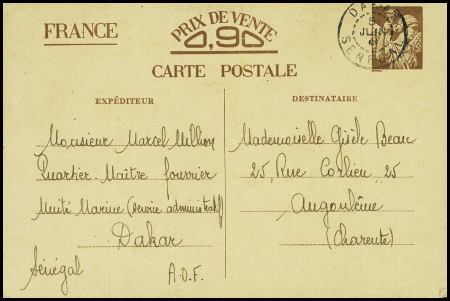 FRANCE
PRIX DE VENTE
0,90
CARTE POSTALE
DAKAR
5
JUIN
41
SENEGAL
EXPÉDITEUR
Monsieur Marcel Million
Quartier-Maître fourrier
Unité Marine (service administratif)
Dakar
Sénégal A.O.F.
DESTINATAIRE
Mademoiselle Gisèle Beau
25, Rue Corlieu, 25
Angoulême
(Charente)